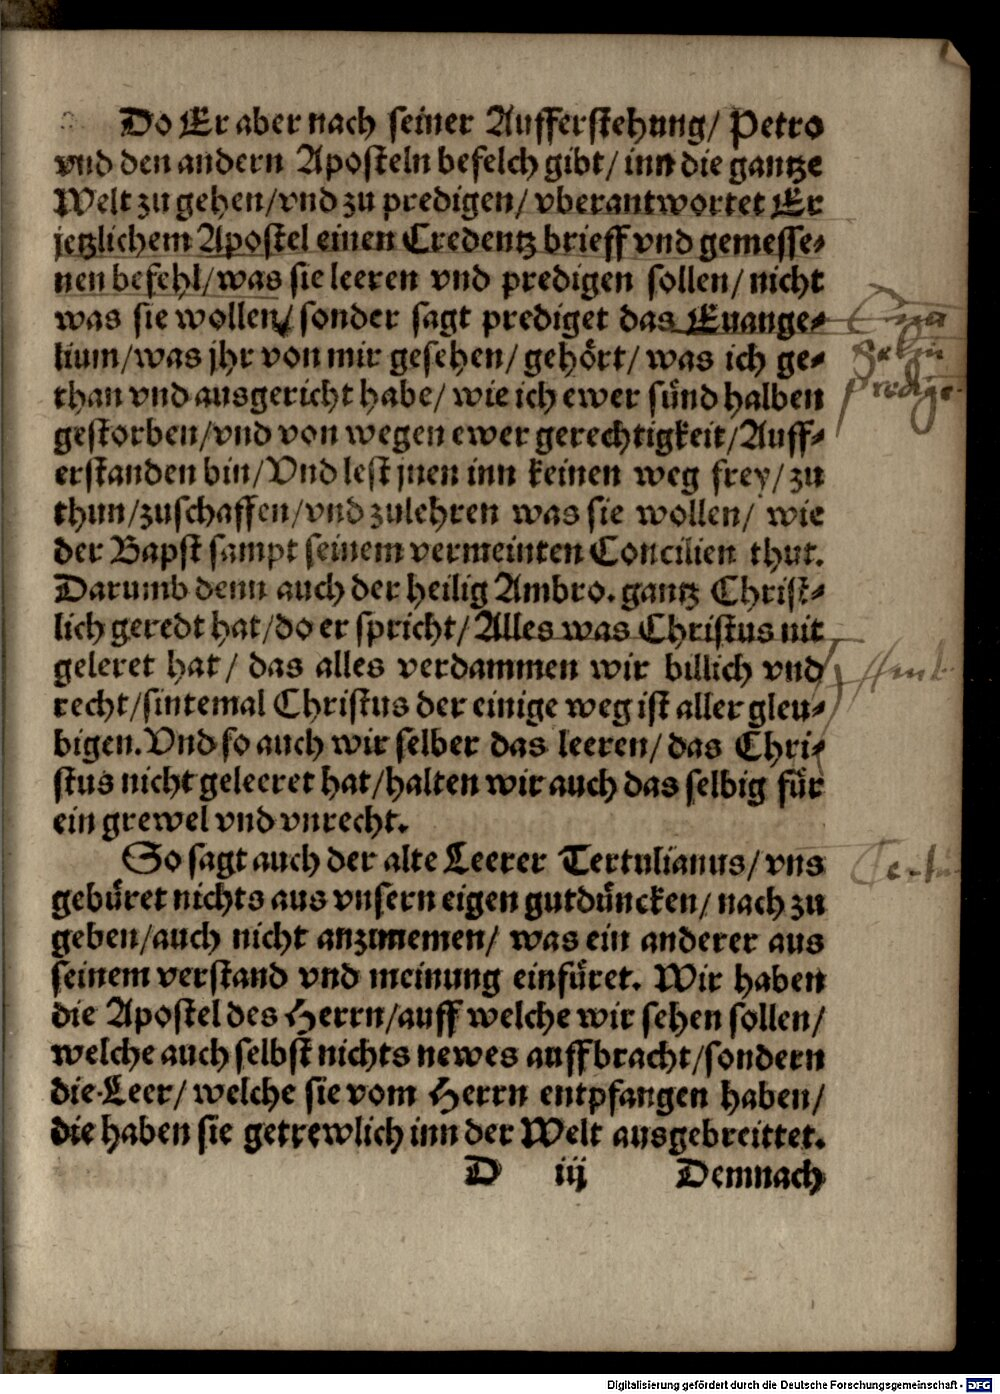 Do Er aber nach seiner Aufferstehung/ Petro
vnd den andern Aposteln befelch gibt/ inn die gantze
Welt zu gehen/vnd zu predigen/ vberantwortet Er
jetzlichem Apostel einen Credentz brieff vnd gemesse⸗
nen befehl/was sie leeren vnd predigen sollen/ nicht
was sie wollen/ sonder sagt prediget das Euange⸗
lium/was jhr von mir gesehen/ gehört/ was ich ge⸗
than vnd ausgericht habe/ wie ich ewer sünd halben
gestorben/vnd von wegen ewer gerechtigkeit/Auff⸗
erstanden bin/Vnd lest jnen inn keinen weg frey/ zu
thun/zuschaffen/vnd zulehren was sie wollen/ wie
der Bapst sampt seinem vermeinten Concilien thut.
Darumb denn auch der heilig Ambro. gantz Christ⸗
lich geredt hat/do er spricht/ Alles was Christus nit
geleret hat/ das alles verdammen wir billich vnd
recht/sintemal Christus der einige weg ist aller gleu⸗
bigen. Vnd so auch wir selber das leeren/ das Chri⸗
stus nicht geleeret hat/halten wir auch das selbig für
ein grewel vnd vnrecht.
So sagt auch der alte Leerer Tertulianus/ vns
gebüret nichts aus vnsern eigen gutdüncken/ nach zu
geben/auch nicht anzunemen/ was ein anderer aus
seinem verstand vnd meinung einfüret. Wir haben
die Apostel des Herrn/auff welche wir sehen sollen/
welche auch selbst nichts newes auffbracht/sondern
die Leer/ welche sie vom Herrn entpfangen haben/
die haben sie getrewlich inn der Welt ausgebreittet.
D iij Demnach
Digitalisierung gefördert durch die Deutsche Forschungsgemeinschaft - DFG